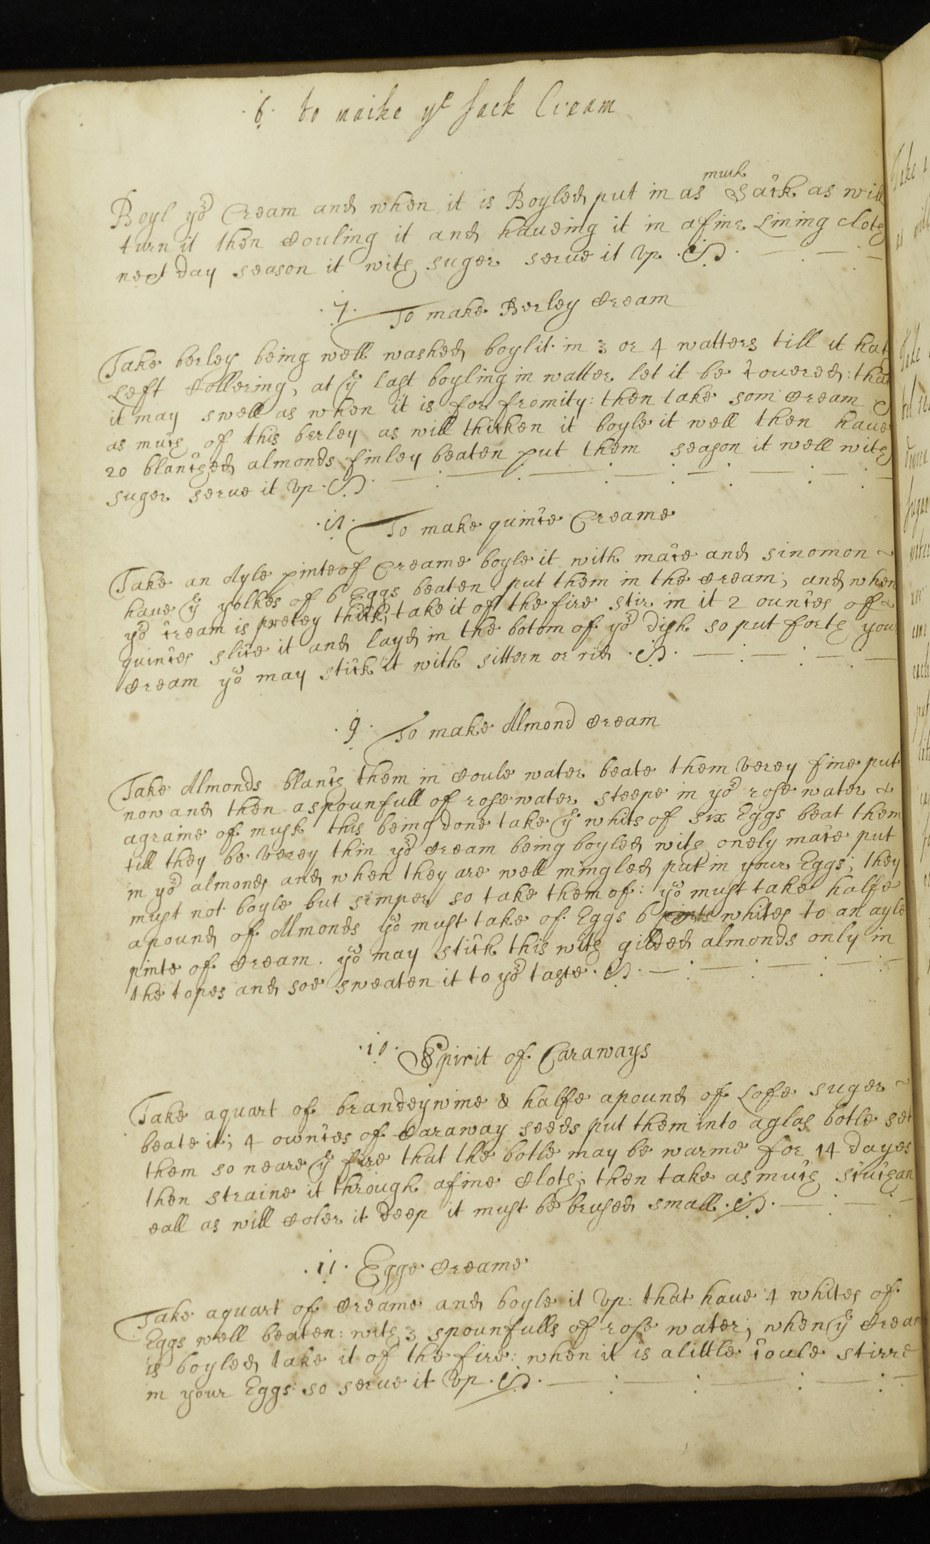 ·6· to maike yͤ sack Cream
much
Boyl yoͬ Cream and when it is Boyled put in as Sack as will
turn it then couling it and haveing it in a fine Lining cloth
next day season it with suger serve it up
·7· To make Berley cream
Take berley being well washed boyl it in 3 or 4 watters till it hath
Left collering, at yͤ last boyling in watter let it be covered: that
it may swell as when it is for fromity: then take som cream &
as much of this berley as will thicken it boyle it well then have
20 blanched almonds finley beaten put them season it well with
suger serve it up
·8· To make quince Creame
Take an Ayle pinte of Creame boyle it with mace and sinomon
have yͤ yolkes of 6 Eggs beaten put them in the cream; and when
yoͬ cream is pretey thick, take it of the fire stir in it 2 ounces off
quinces slice it and layd in the botom of yoͬ dish so put forth your
cream yoͧ may stick it with sittern or rid
·9· To make Almond cream
Take Almonds blanch them in coule water beate them verey fine put
now and then a spounfull of rose water steepe in yoͬ rose water
a graine of musk this being done take yͤ whits of six Eggs beat them
till they be verey thin yoͬ cream being boyled with onely mace put
in yoͬ almonds and when they are well mingled put in your Eggs; they
must not boyle but simper so take them of: yoͧ must take halfe
a pound of Almonds yoͧ must take of Eggs 6 whites to an ayle
pinte of cream. yoͧ may stick this with gilded almonds only in
the topes and soe sweaten it to yoͬ taste
·10· Spirit of Caraways
Take a quart of brandeywine & halfe a pound of Lofe suger
beate it; 4 ownces of Caraway seeds put them into a glas botle set
them so neare yͤ fire that the botle may be warme for 14 dayes
then straine it through a fine cloth; then take as much
eall as will coler it deep it must be brused small
·11· Egge creame
Take a quart of creame and boyle it up: that have 4 whites of
Eggs well beaten: with 3 spounfulls of rose water; when yͤ cream
is boyled take it of the fire: when it is a little coule stirre
in your Eggs: so serve it up